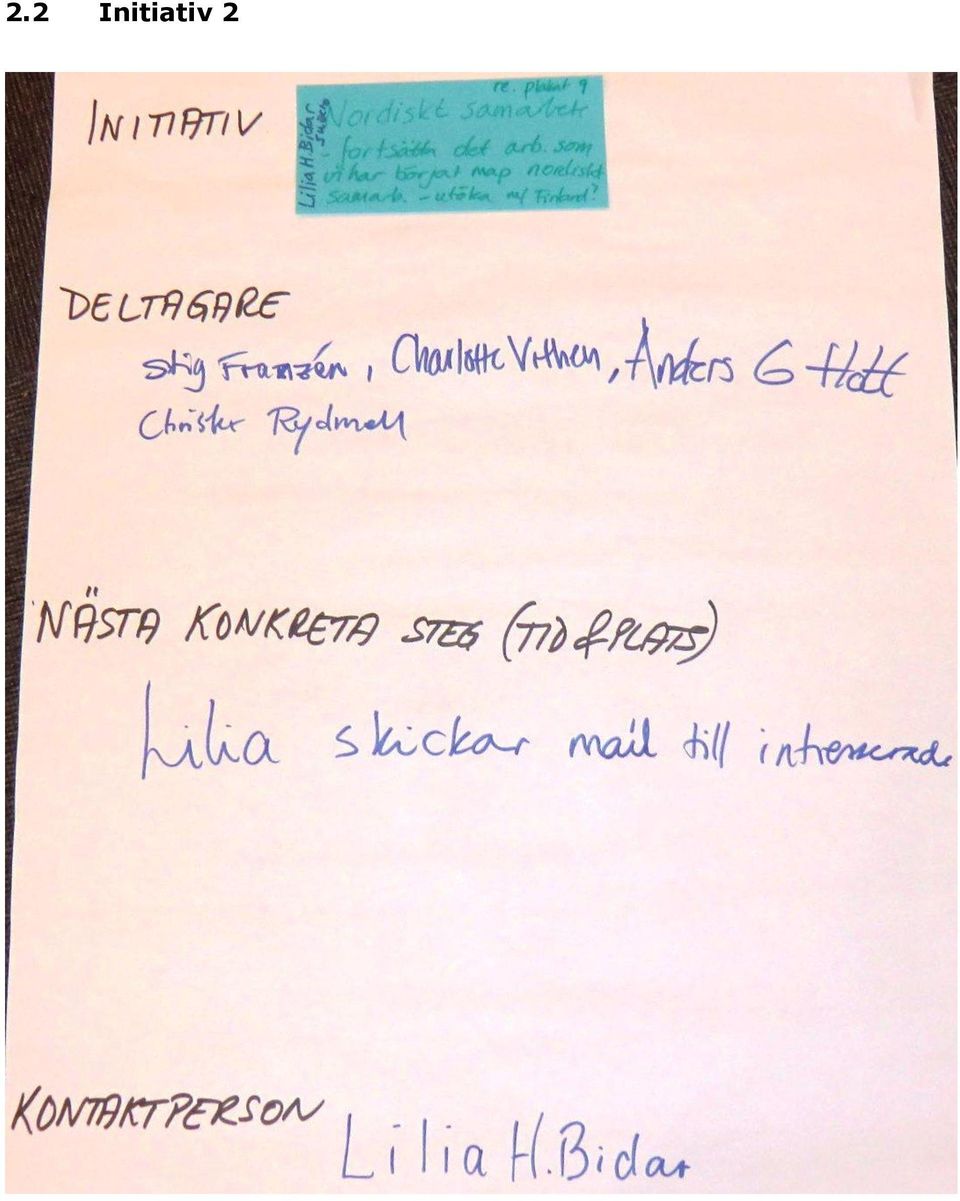 2.2 Initiativ 2
INITIATIV
re. plakat 9
Nordiskt samarbete
- fortsätta det arb. som
vi har börjat map nordiskt
samarb. - utöka m/ Finland?
Lilia H. Bidar
DELTAGARE
Stig Franzén, Charlotte Vithen, Anders G
Christer Rydmell
NÄSTA KONKRETA STEG (TID & PLATS)
Lilia skickar mail till intresserade
KONTAKTPERSON Lilia H. Bidar